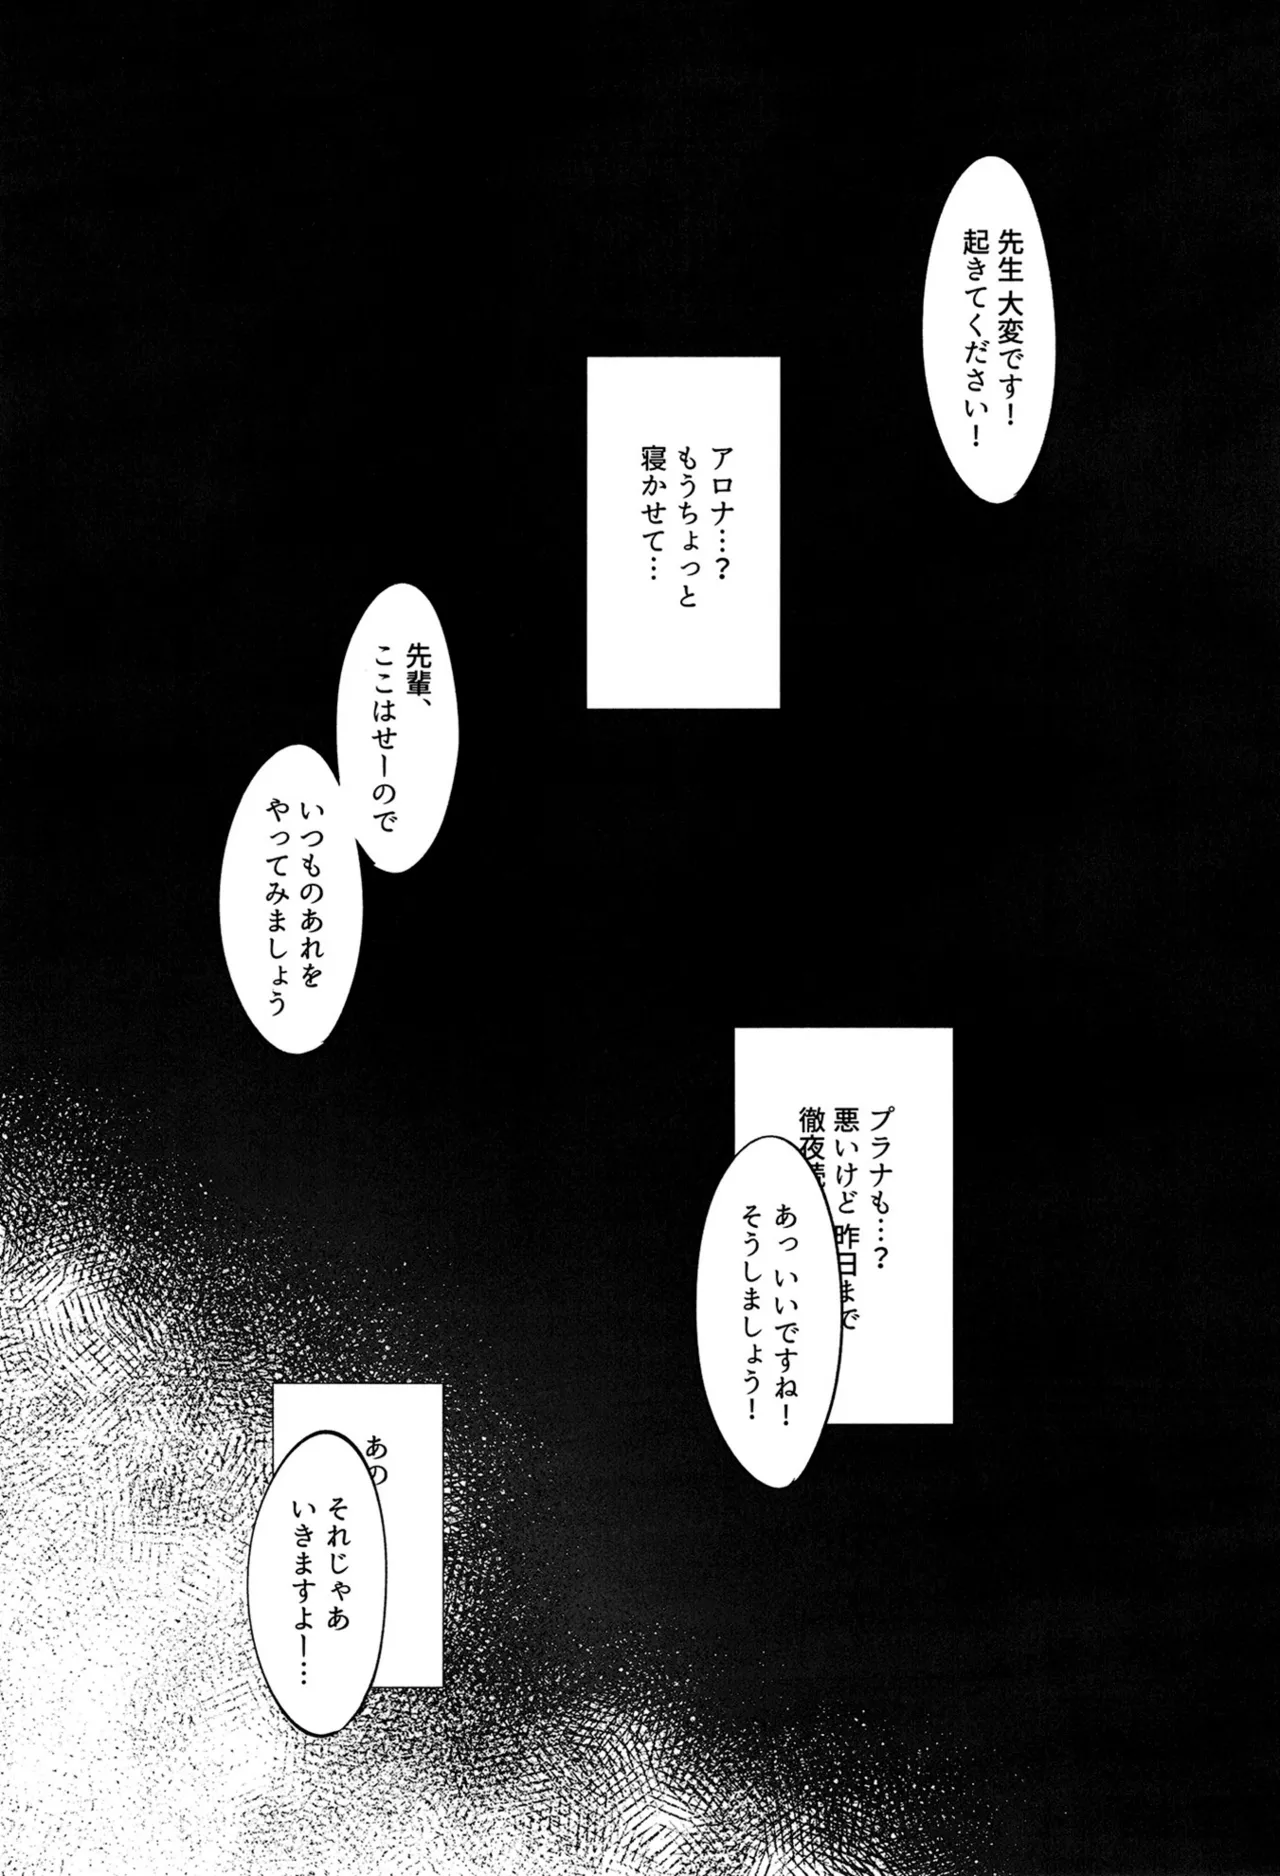 先生 大変です！
起きてください！
アロナ…？
もうちょっと
寝かせて…
先輩、
ここはせーので
いつものあれを
やってみましょう
プラナも…？
悪いけど 昨日まで
徹夜
あっ いいですね！
そうしましょう！
あの
それじゃあ
いきますよー…